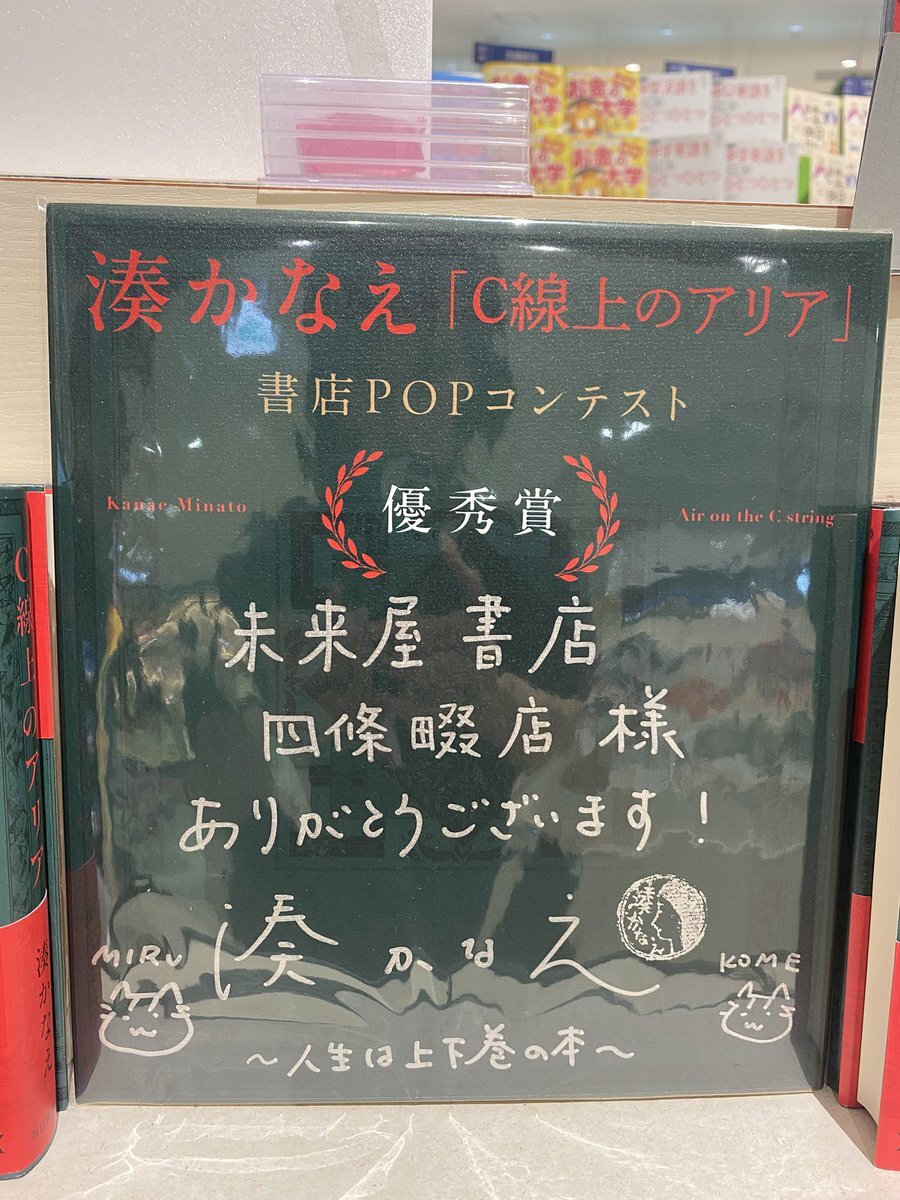 お金の大学
お金の大学
お金の大学
お金の大学
湊かなえ「C線上のアリア」
書店POPコンテスト
Kanae Minato
優秀賞
Air on the C string
未来屋書店
四條畷店 様
ありがとうございます!
MIRU
湊かなえ
KOME
〜人生は上下巻の本〜
C線上のアリア
湊かなえ